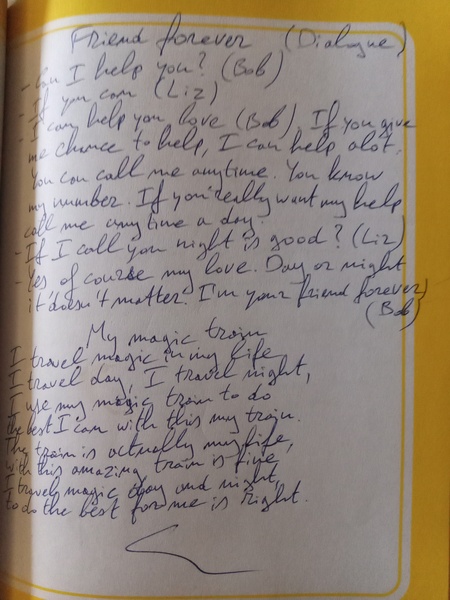 Friend forever (Dialogue)
- Can I help you? (Bob)
- If you can (Liz)
- I can help you love (Bob). If you give
me chance to help, I can help alot.
You can call me anytime. You know
my number. If you really want my help
call me any time a day.
- If I call you night is good? (Liz)
- Yes of course my love. Day or night
it doesn't matter. I'm your friend forever
(Bob)
My magic train
I travel magic in my life
I travel day, I travel night,
I use my magic train to do
the best I can with this my train.
The train is actually my life,
with this amazing train is fine,
I travel magic day and night,
to do the best for me is right.